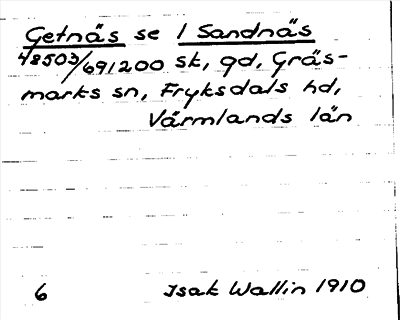 Getnäs se 1 Sandnäs
48503/691200 sk, gd, Gräs-
marks sn, Fryksdals hd,
Värmlands län
6 Isak Wallin 1910